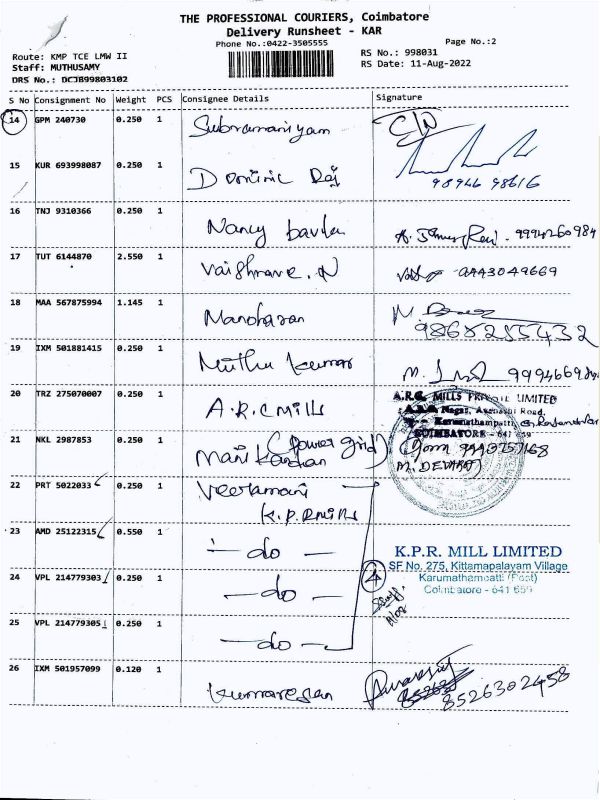 THE PROFESSIONAL COURIERS, Coimbatore
Delivery Runsheet - KAR
Phone No.:0422-3505555
Page No.:2
Route: KMP TCE LMW II
RS No.: 998031
Staff: MUTHUSAMY
RS Date: 11-Aug-2022
DRS No.: DCJB99803102
S No Consignment No Weight PCS Consignee Details Signature
14 GPM 240730 0.250 1 Subramaniyam
15 KUR 693998087 0.250 1 Dominic Raj 98946 98616
16 TNJ 9310366 0.250 1 Nancy
17 TUT 6144870 2.550 1 Vaishnave.N 9443049669
18 MAA 567875994 1.145 1 Manoharan M. 9868255432
19 IXM 501881415 0.250 1 Muthu Kumar M.
20 TRZ 275070007 0.250 1 A.R.C Mills
A.R.C. MILLS PRIVATE LIMITED
Nagar, Avinashi Road,
Karumathampatti,
COIMBATORE - 641 659
21 NKL 2987853 0.250 1 (power grid) Manikandan
M. DEVARAJ
22 PRT 5022033 0.250 1 Veeramani
K.P.R Mills
23 AMD 25122315 0.550 1 - do -
K.P.R. MILL LIMITED
SF No. 275, Kittampalayam Village
Karumathampatti (Post)
Coimbatore - 641 659
24 VPL 214779303 0.250 1 - do - 4
25 VPL 214779305 0.250 1 - do -
26 IXM 501957099 0.120 1 Kumaresan 8526302458